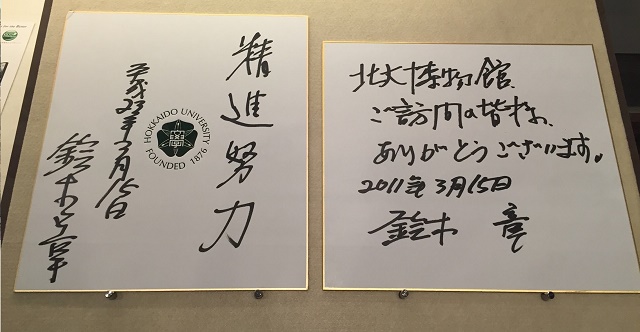 精進努力
平成23年3月15日
鈴木章
HOKKAIDO UNIVERSITY
FOUNDED 1876
大學
北大博物館
ご訪問の皆様、
ありがとうございます。
2011年3月15日
鈴木 章